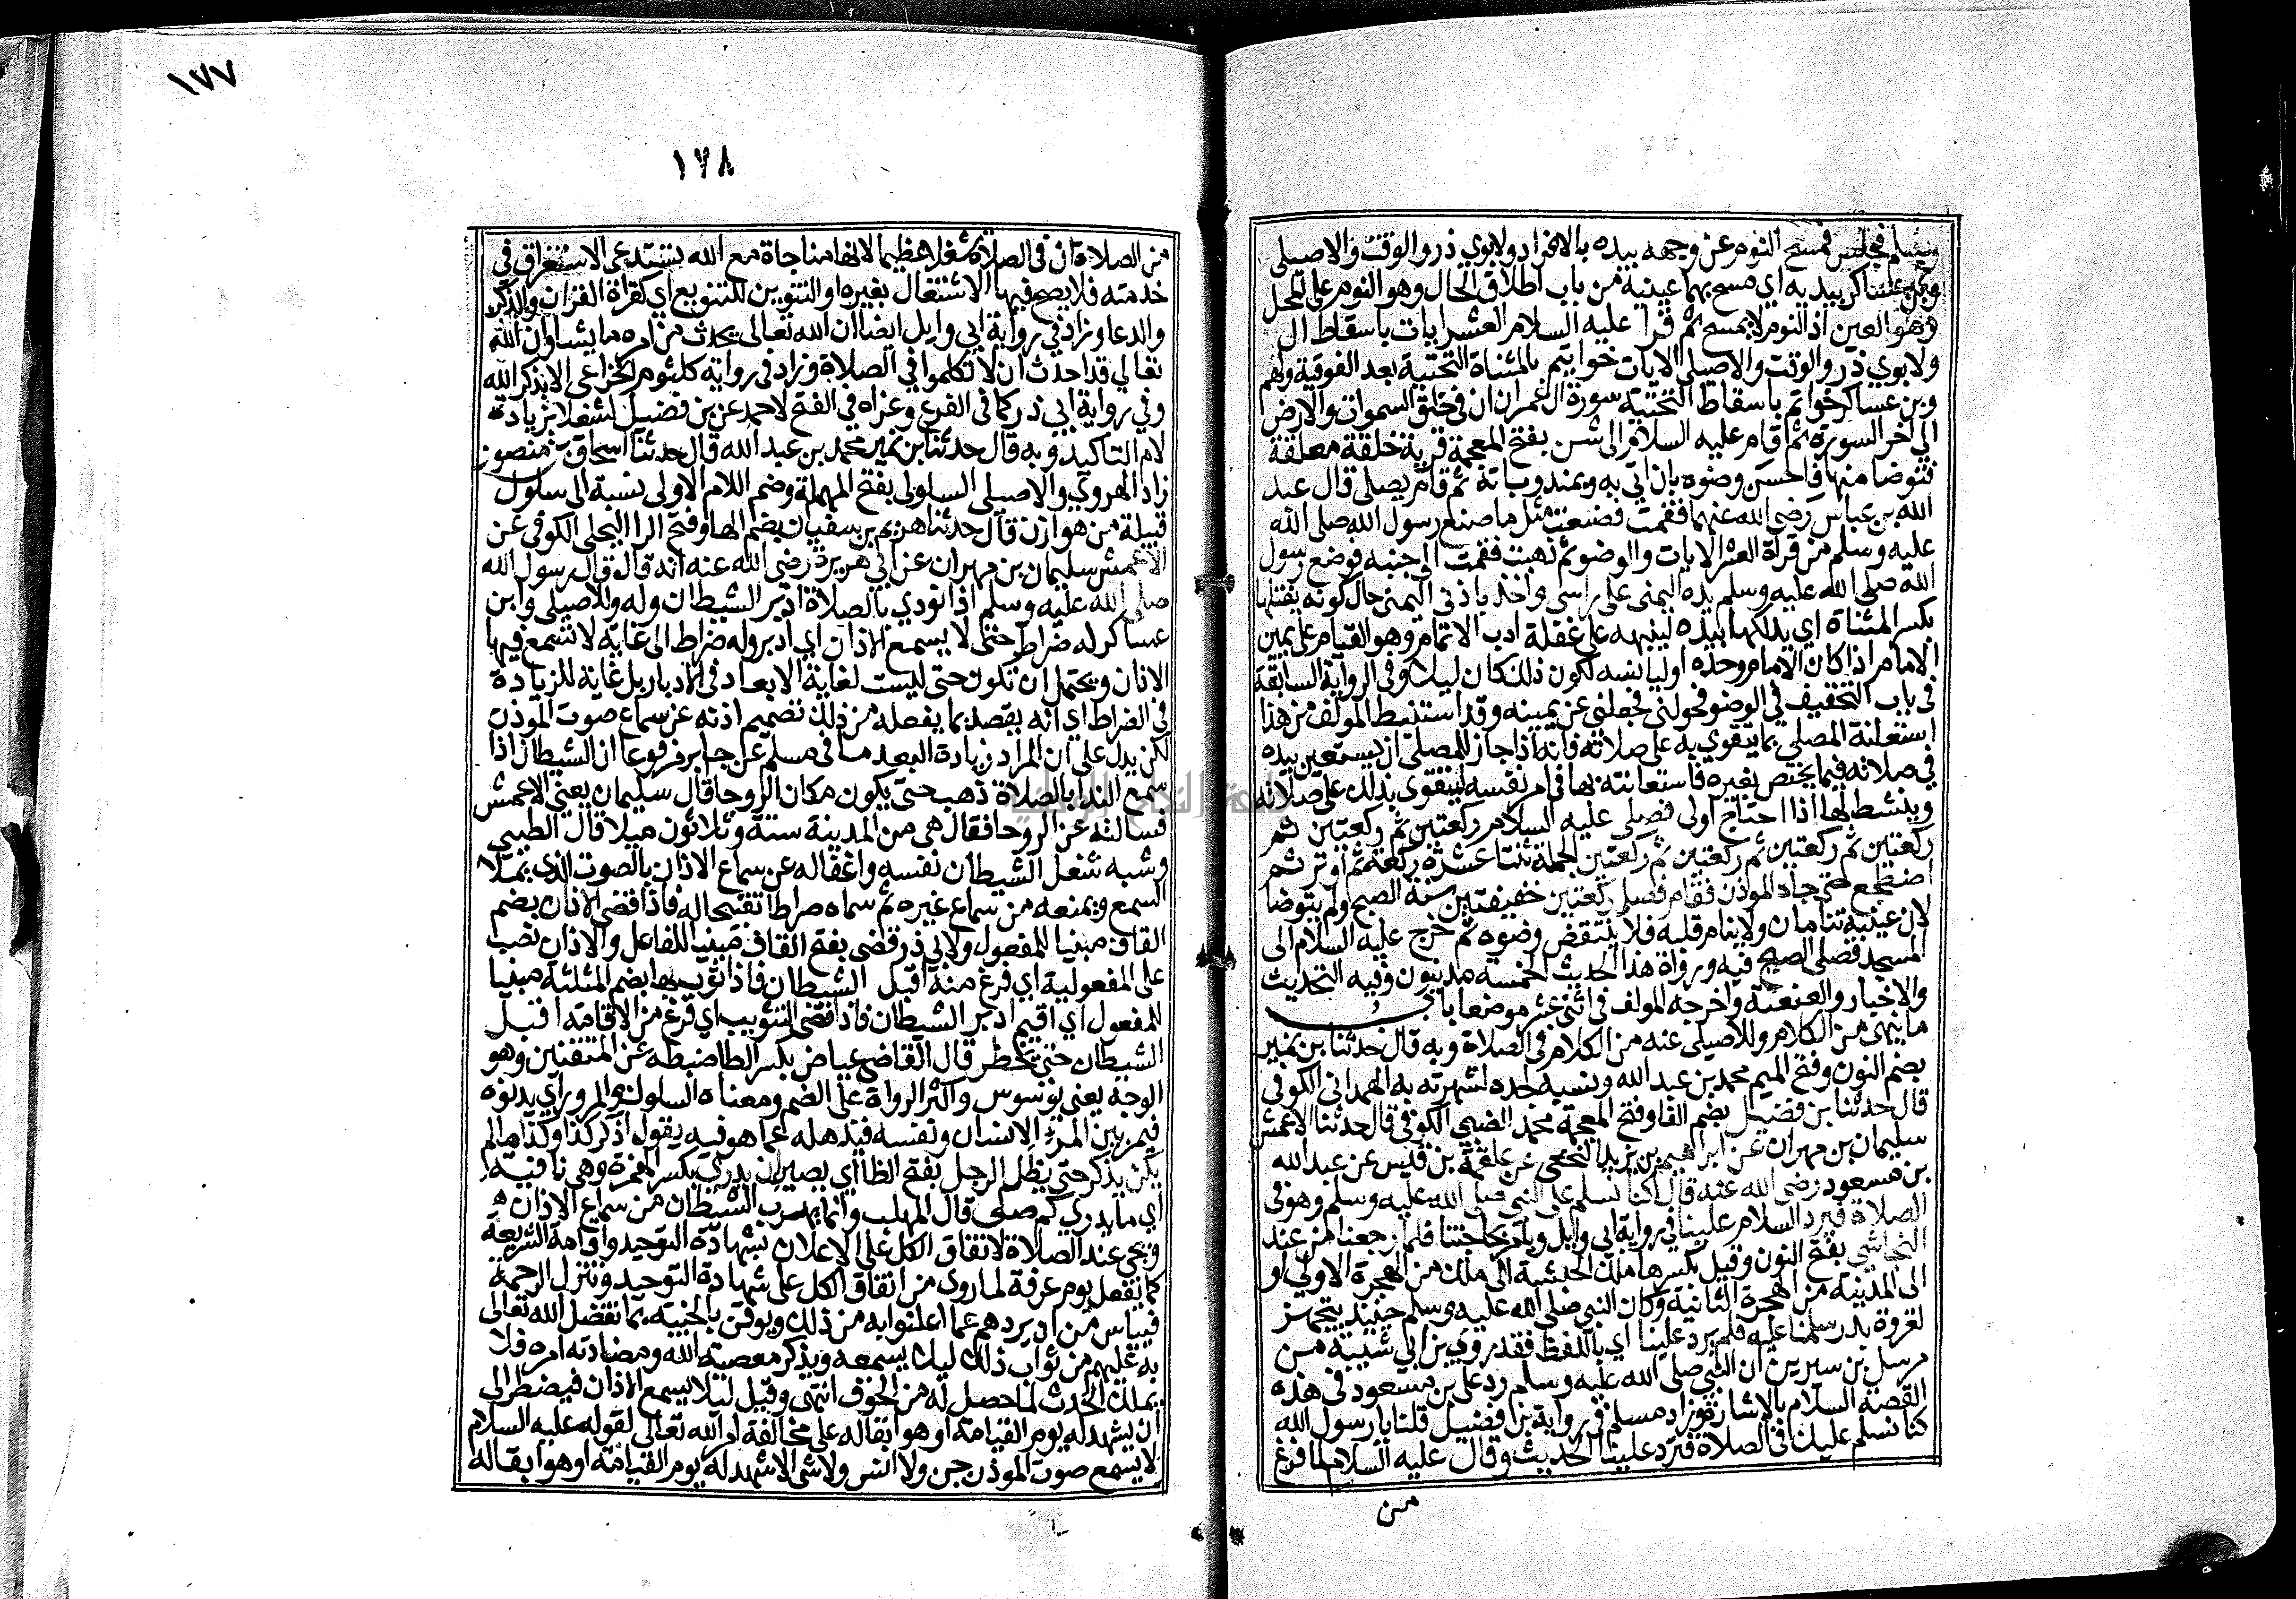 وسلم فجلس فمسح النوم عن وجهه بيده بالافراد ولابوي ذر والوقت والاصيلي
وبن عساكر بيديه اي مسح بهما عينيه من باب اطلاق الحال وهو النوم على المحل
وهو العين اذ النوم لا يمسح ثم قرا عليه السلام العشر ايات باسقاط ال
ولابوي ذر والوقت والاصيلي الايات خواتيم بالمثناة التحتية بعد الفوقية ولهم
وبن عساكر خواتم باسقاط التحتية سورة ال عمران ان في خلق السموات والارض
الى اخر السورة ثم قام عليه السلام الى شن بفتح المعجمة قربة خلقة معلقة
فتوضا منها فاحسن وضوه بان اتي به وبمندوباته ثم قام يصلي قال عبد
الله بن عباس رضي الله عنهما فقمت فصنعت مثل ما صنع رسول الله صلى الله
عليه وسلم من قراة العشر الايات والوضو ثم ذهبت فقمت الى جنبه فوضع رسول
الله صلى الله عليه وسلم يده اليمنى على راسي واخذ باذني اليمنى حال كونه يفتلها
بكسر المثناة اي يدلكها بيده لينبهه على غفلة ادب الائتمام وهو القيام على يمين
الامام اذا كان الامام وحده او ليانسه لكون ذلك كان ليلا وفي الرواية السابقة
في باب التخفيف في الوضو فحولني فجعلني عن يمينه وقد استنبط المولف من هذا
استعانة المصلي بما يتقوي به على صلاته فانه اذا جاز للمصلي ان يستعين بيده
في صلاته فيما يختص بغيره فاستعانته بها في امر نفسه ليتقوى بذلك على صلاته
وينشط لها اذا احتاج اولى فصلى عليه السلام ركعتين ثم ركعتين ثم
ركعتين ثم ركعتين ثم ركعتين ثم ركعتين الجملة ثنتا عشرة ركعة ثم اوتر ثم
اضطجع حتى جاه الموذن فقام فصلى ركعتين خفيفتين سنة الصبح ولم يتوضا
لان عينيه تنامان ولا ينام قلبه فلا ينتقض وضوه ثم خرج عليه السلام الى
المسجد فصلى الصبح فيه ورواة هذا الحديث الخمسة مدنيون وفيه التحديث
والاخبار والعنعنة واخرجه المولف في اثنى عشر موضعا باب
ما ينهى من الكلام وللاصيلي عنه من الكلام في الصلاة وبه قال حدثنا بن نمير
بضم النون وفتح الميم محمد بن عبد الله ونسبه لجده لشهرته به الهمداني الكوفي
قال حدثنا بن فضيل بضم الفا وفتح المعجمة محمد الضبي الكوفي قال حدثنا الاعمش
سليمان بن مهران عن ابراهيم بن يزيد النخعي عن علقمة بن قيس عن عبد الله
بن مسعود رضي الله عنه قال كنا نسلم على النبي صلى الله عليه وسلم وهو في
الصلاة فيرد السلام علينا في رواية ابي وايل ويامر بحاجتنا فلما رجعنا من عند
النجاشي بفتح النون وقيل بكسرها ملك الحبشة الى ملك من الهجرة الاولى او
الى المدينة من الهجرة الثانية وكان النبي صلى الله عليه وسلم حينيذ يتجهز
لغزوة بدر سلمنا عليه فلم يرد علينا اي باللفظ فقد روي بن ابي شيبة من
مرسل بن سيرين ان النبي صلى الله عليه وسلم رد على بن مسعود في هذه
القصة السلام بالاشارة وزاد مسلم في رواية بن فضيل قلنا يا رسول الله
كنا نسلم عليك في الصلاة فترد علينا الحديث وقال عليه السلام لما فرغ
من
١٧٧
١٧٨
من الصلاة ان في الصلاة شغلا عظيما لانها مناجاة مع الله تستدعي الاستغراق في
خدمته فلا يصح فيها الاشتغال بغيره او التنوين للتنويع اي كقراة القران والذكر
والدعا وزاد في رواية ابي وايل ايضا ان الله تعالى يحدث من امره ما يشا وان الله
تعالى قد احدث ان لا تكلموا في الصلاة وزاد في رواية كلثوم الخزاعي الا بذكر الله
وفي رواية ابي ذر كما في الفرع وعزاه في الفتح لاحمد عن بن فضيل لشغلا بزيادة
لام التاكيد وبه قال حدثنا بن نمير محمد بن عبد الله قال حدثنا اسحاق بن منصور
زاد الهروي والاصيلي السلولي بفتح المهملة وضم اللام الاولى نسبة الى سلول
قبيلة من هوازن قال حدثنا هريم بن سفيان بضم الها وفتح الرا البجلي الكوفي عن
الاعمش سليمان بن مهران عن ابي هريرة رضي الله عنه انه قال قال رسول الله
صلى الله عليه وسلم اذا نودي بالصلاة ادبر الشيطان وله وللاصيلي وابن
عساكر له ضراط حتى لا يسمع الاذان اي ادبر وله ضراط الى غاية لا يسمع فيها
الاذان ويحتمل ان تكون حتى ليست لغاية الابعاد في الادبار بل غاية للزيادة
في الضراط اي انه يقصد بما يفعله من ذلك تصميم اذنه عن سماع صوت الموذن
لكن يدل على ان المراد زيادة البعد ما في مسلم عن جابر مرفوعا ان الشيطان اذا
سمع الندا بالصلاة ذهب حتى يكون مكان الروحا قال سليمان يعني الاعمش
فسالته عن الروحا فقال هي من المدينة ستة وثلاثون ميلا قال الطيبي
وشبه شغل الشيطان نفسه واغفاله عن سماع الاذان بالصوت الذي يملا
السمع ويمنعه من سماع غيره ثم سماه ضراطا تقبيحا له فاذا قضي الاذان بضم
القاف مبنيا للمفعول ولابي ذر قضى بفتح القاف مبنيا للفاعل والاذان نصب
على المفعولية اي فرغ منه اقبل الشيطان فاذا ثوب بها بضم المثلثة مبنيا
للمفعول اي اقيم ادبر الشيطان فاذا قضى التثويب اي فرغ من الاقامة اقبل
الشيطان حتى يخطر قال القاضي عياض بكسر الطا ضبطه عن المتقنين وهو
الوجه يعني يوسوس واكثر الرواة على الضم ومعناه السلوك والمرور اي يدنوه
فيمر بين المرء الانسان ونفسه فيذهله عما هو فيه يقول اذكر كذا وكذا ما لم
يكن يذكر حتى يظل الرجل بفتح الظا اي يصير ان يدري بكسر الهمزة وهي نافية
اي ما يدري كم صلى قال المهلب وانما يهرب الشيطان من سماع الاذان
ويجي عند الصلاة لاتفاق الكل على الاعلان بشهادة التوحيد واقامة الشريعة
كما يفعل يوم عرفة لما روى من اتفاق الكل على شهادة التوحيد وتنزل الرحمة
فيياس من ان يردهم عما اعلنوا به من ذلك ويوقن بالخيبة بما تفضل الله تعالى
به عليهم من ثواب ذلك ليلا يسمعه ويذكر معصية الله ومضادته امره فلا
يملك الحدث لما حصل له من الخوف انتهى وقيل ليلا يسمع الاذان فيضطر الى
ان يشهد له يوم القيامة او هو ابقاله على مخالفة امر الله تعالى لقوله عليه السلام
لا يسمع صوت الموذن جن ولا انس ولا شي الا شهد له يوم القيامة او هو ابقاله